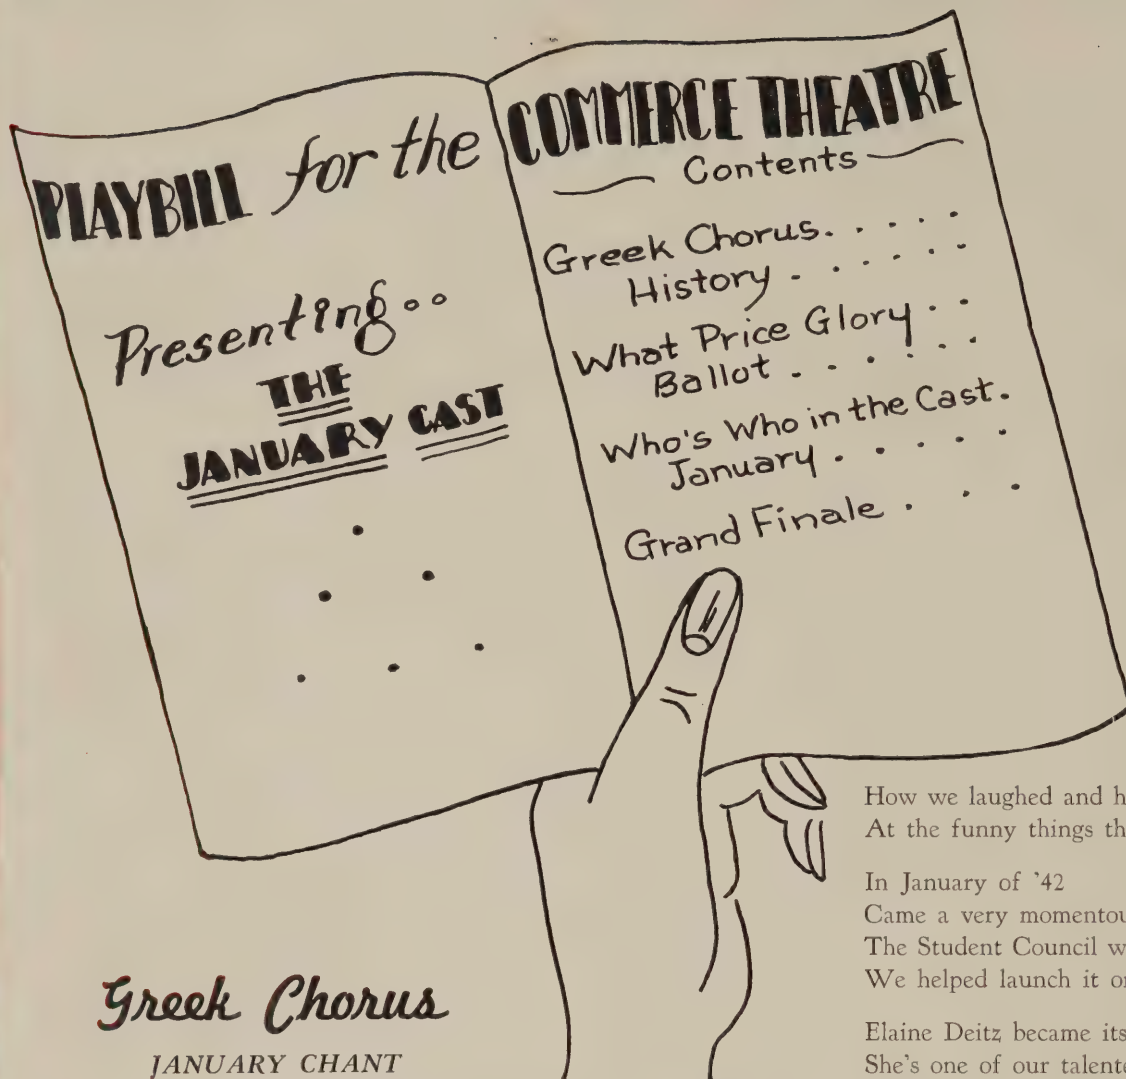 PLAYBILL for the
Presenting..
THE
JANUARY CAST
COMMERCE THEATRE
Contents
Greek Chorus. . . . . .
History . . . . . .
What Price Glory . .
Ballot . . . . . .
Who's Who in the Cast.
January . . . . .
Grand Finale . . .
Greek Chorus
JANUARY CHANT
How we laughed and
At the funny things
In January of '42
Came a very
The Student Council
We helped launch it
Elaine Deitz became its
She's one of our